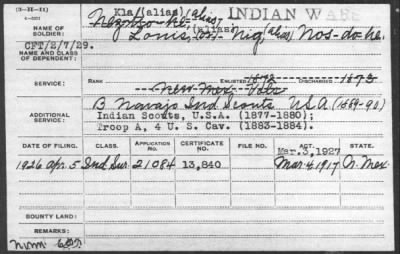 (3-31-11)
Kla/(alias)(alias) INDIAN WARS
NAME OF SOLDIER:
(alias)
Louis, Nig (alias) Nos-do-he.
CFT/2/7/29.
NAME AND CLASS OF DEPENDENT:
SERVICE:
RANK ENLISTED 1872 DISCHARGED 1873
New Mex Vols
ADDITIONAL SERVICE:
B Navajo Ind Scouts U.S.A. (1889-90)
Indian Scouts, U.S.A. (1877-1880);
Troop A, 4 U. S. Cav. (1883-1884).
DATE OF FILING. CLASS. APPLICATION NO. CERTIFICATE NO. FILE NO. ACT. STATE.
Mar. 3, 1927
1926 apr. 5 Ind Sur. 21084 13,840 Mar 4, 1917 N. Mex
BOUNTY LAND:
REMARKS: